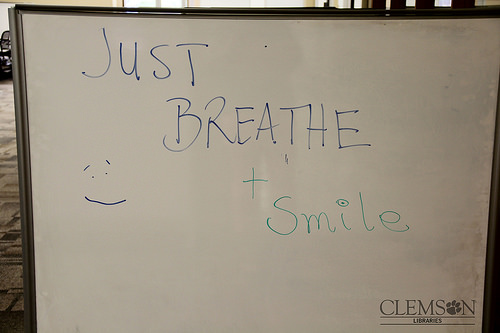 JUST
BREATHE
+
Smile
CLEMSON
LIBRARIES